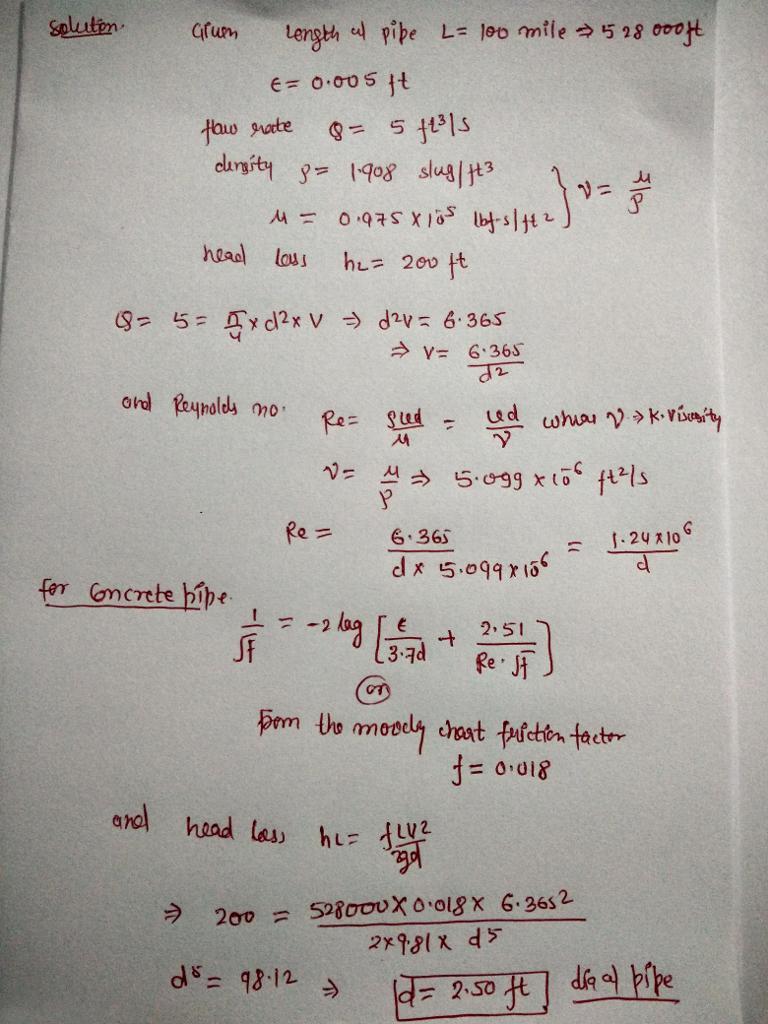 Solution. Given Length of pipe L= 100 mile ⇒ 528 000ft
ϵ= 0.005 ft
flow rate Q= 5 ft³/s
density ρ= 1.908 slug/ft3
μ = 0.975 X 10⁻⁵ lbf-s/ft2 } ν= μ/ρ
head loss hL= 200 ft
Q= 5= π/4 x d2x V ⇒ d2V= 6.365
⇒ V= 6.365/d2
and Reynolds no. Re= ρud/μ = ud/ν where ν→K.Viscosity
ν= μ/ρ ⇒ 5.099 x 10⁻⁶ ft²/s
Re= 6.365/(d x 5.099x10⁻⁶) = 1.24x10⁶/d
for Concrete pipe.
1/√f = -2 log [ϵ/3.7d + 2.51/(Re.√f)]
or
from the moody chart friction factor
f= 0.018
and head loss hL= fLV2/2gd
⇒ 200 = (528000X0.018X 6.365²)/(2x9.81x d5)
d⁵= 98.12 ⇒ d= 2.50 ft dia of pipe